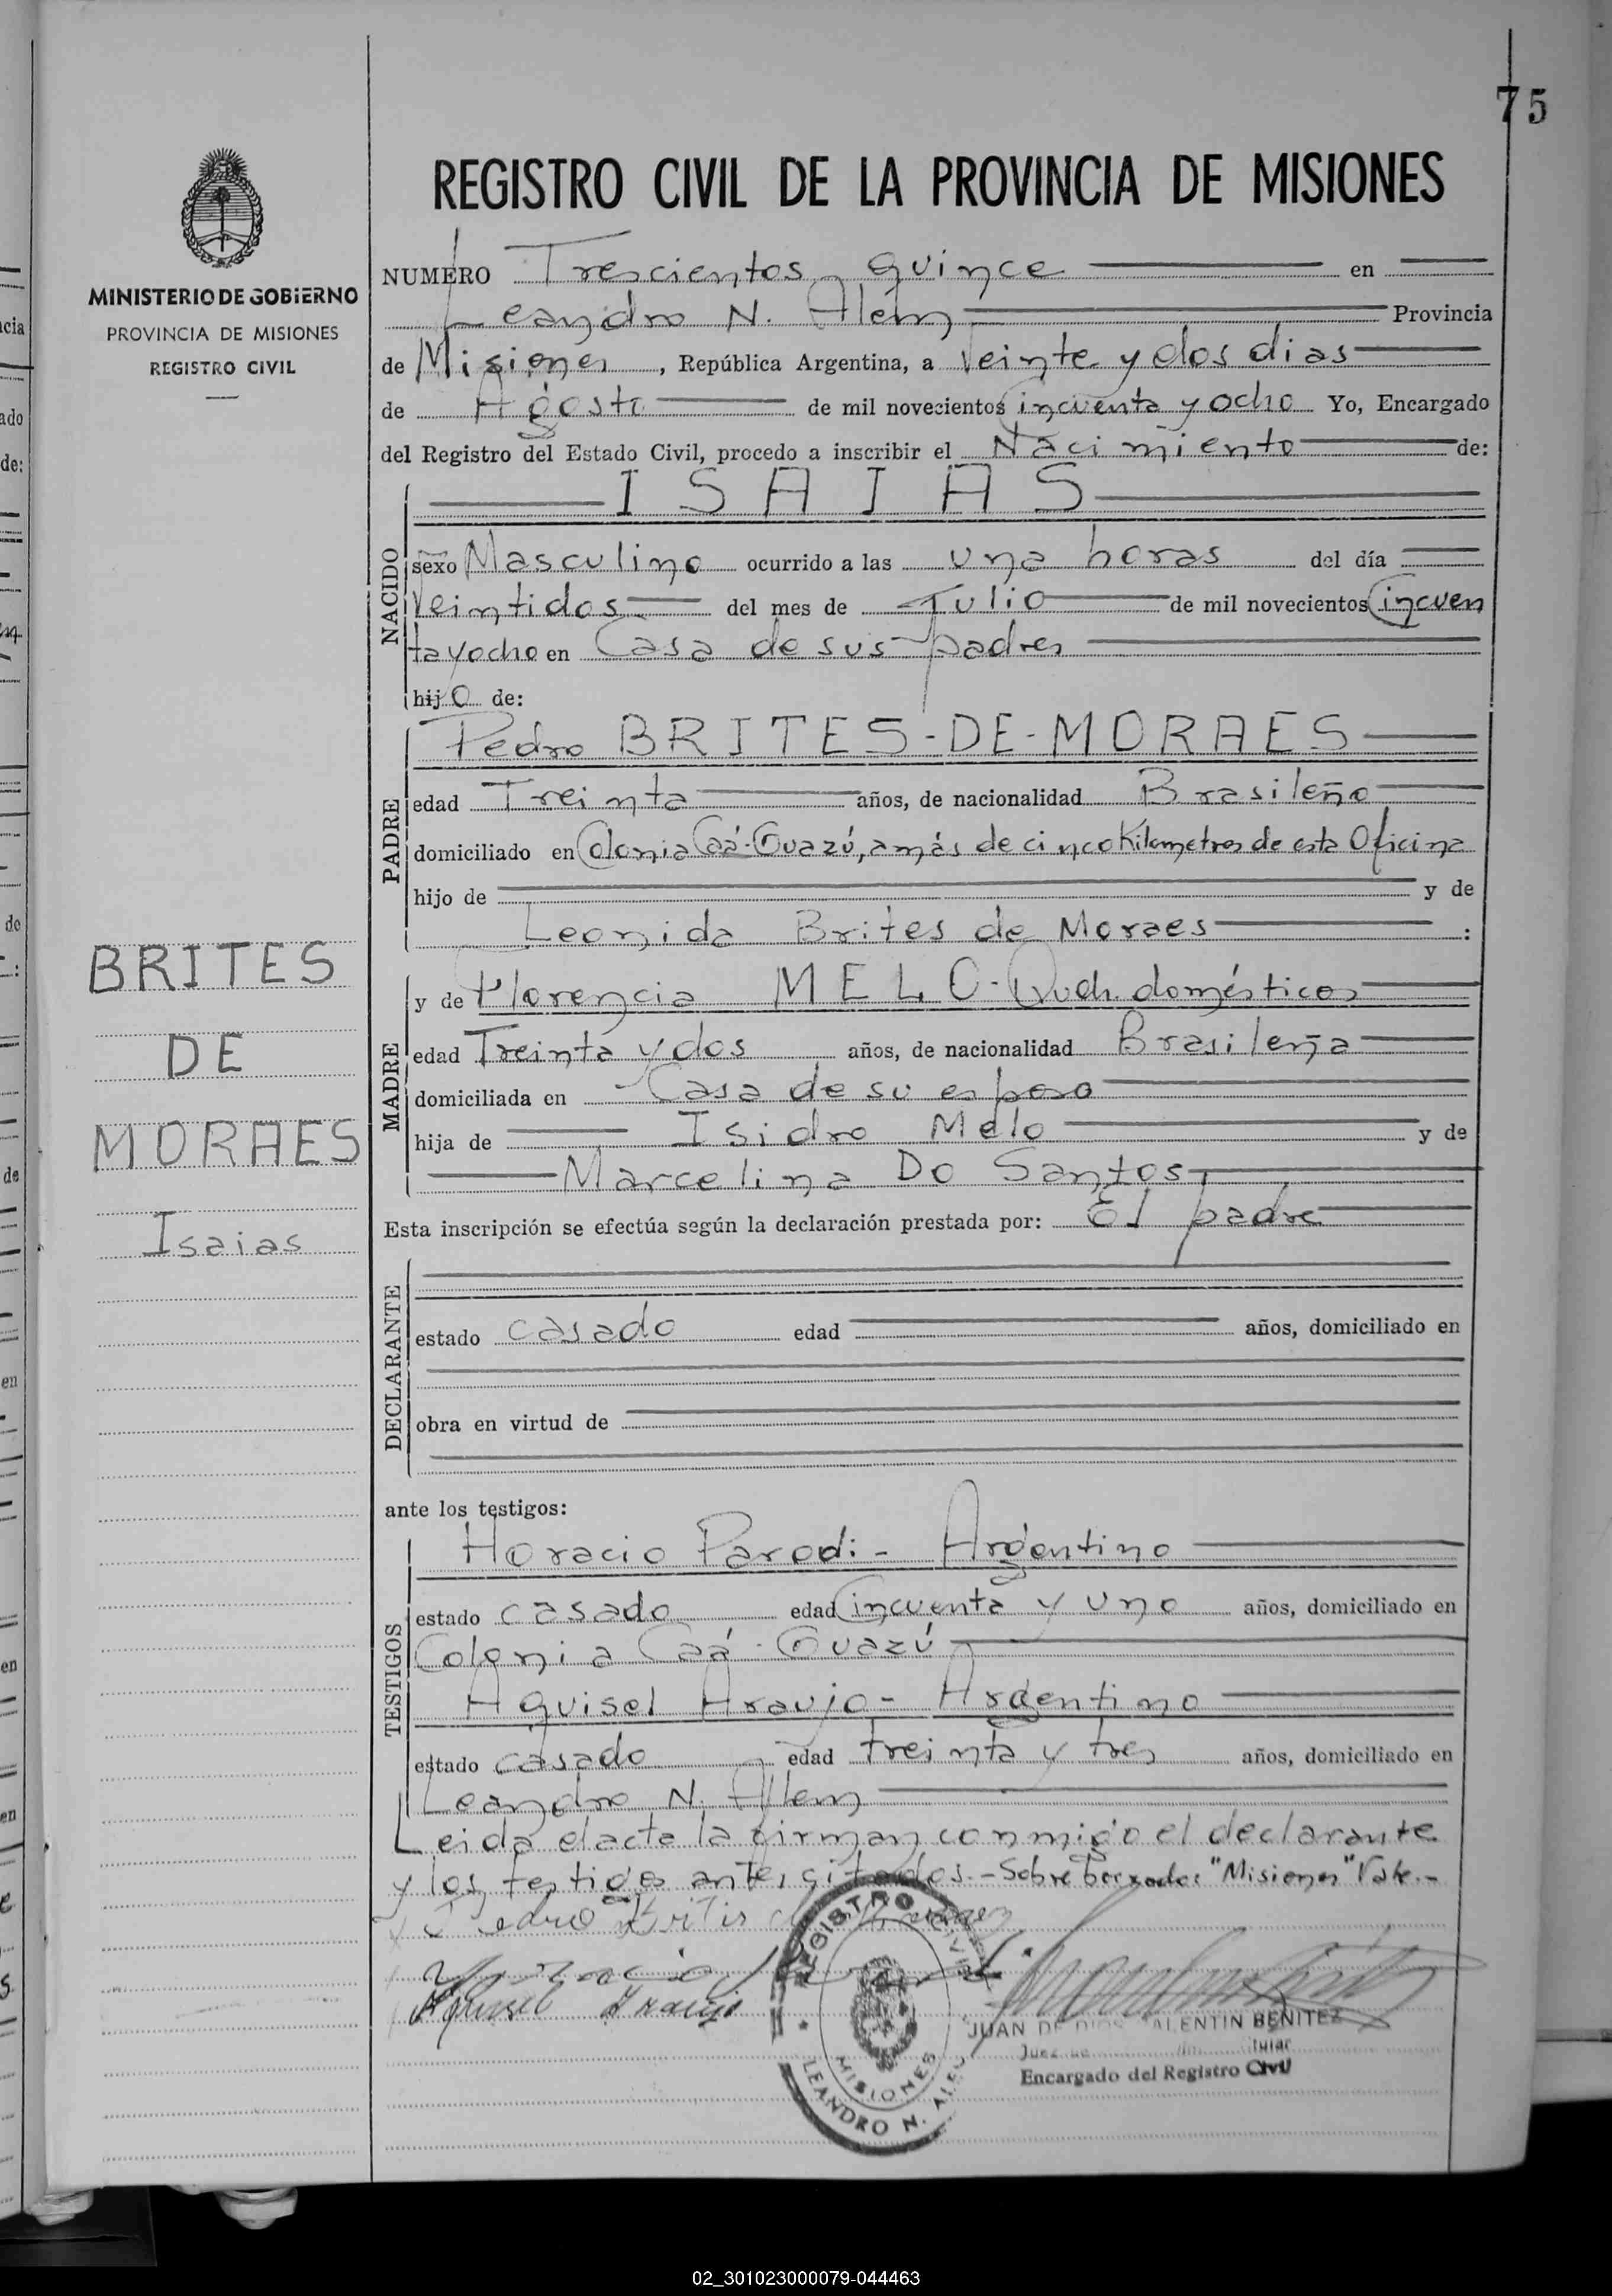 75
REGISTRO CIVIL DE LA PROVINCIA DE MISIONES
MINISTERIO DE GOBIERNO
PROVINCIA DE MISIONES
REGISTRO CIVIL
NUMERO Trescientos quince en
Leandro N. Alem Provincia
de Misiones, República Argentina, a Veinte y dos dias
de Agosto de mil novecientos Cincuenta y ocho Yo, Encargado
del Registro del Estado Civil, procedo a inscribir el Nacimiento de:
NACIDO
ISAIAS
sexo Masculino ocurrido a las una horas del día
Veintidos del mes de Julio de mil novecientos Cincuen
tayocho en Casa de sus padres
hijo de:
PADRE
Pedro BRITES-DE-MORAES
edad Treinta años, de nacionalidad Brasileño
domiciliado en Colonia Caá-Guazú, a más de cinco Kilometros de esta Oficina
hijo de y de
Leonida Brites de Moraes :
MADRE
y de Florencia MELO- Queh. domésticos
edad Treinta y dos años, de nacionalidad Brasileña
domiciliada en Casa de su esposo
hija de Isidro Melo y de
Marcelina Do Santos
Esta inscripción se efectúa según la declaración prestada por: El padre
DECLARANTE
estado casado edad años, domiciliado en
obra en virtud de
ante los testigos:
TESTIGOS
Horacio Parodi - Argentino
estado casado edad Cincuenta y uno años, domiciliado en
Colonia Caá-Guazú
Aguisel Araujo - Argentino
estado casado edad treinta y tres años, domiciliado en
Leandro N. Alem
Leida el acta la firman conmigo el declarante
y los testigos antes citados.- Sobre borrado: "Misiones" Vale.-
BRITES
DE
MORAES
Isaias
Pedro Britis de
Aguisel Araujo
REGISTRO CIVIL
MISIONES
LEANDRO N. ALEM
JUAN DE DIOS VALENTIN BENITEZ
Juez de
Encargado del Registro Civil
02_301023000079-044463